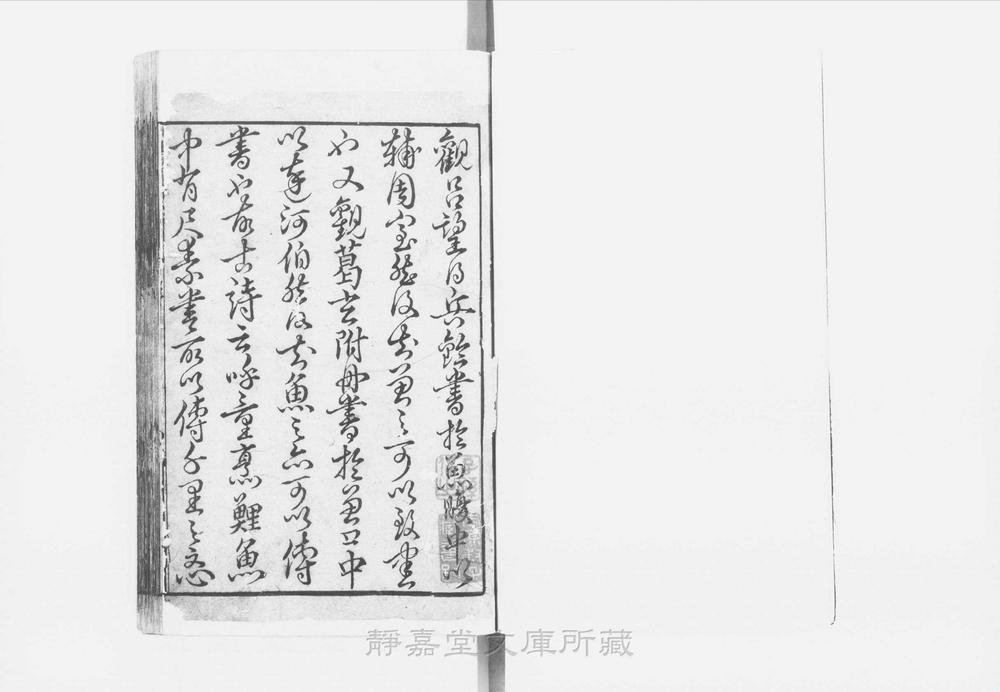 觀呂望得兵鈐書於魚腹中以
輔周室然後知魚之可以致書
也又觀葛玄附丹書於魚口中
以達河伯然後知魚之亦可以傳
書也故古詩云呼童烹鯉魚
中有尺素書所以傳千里之
靜嘉堂文庫所藏